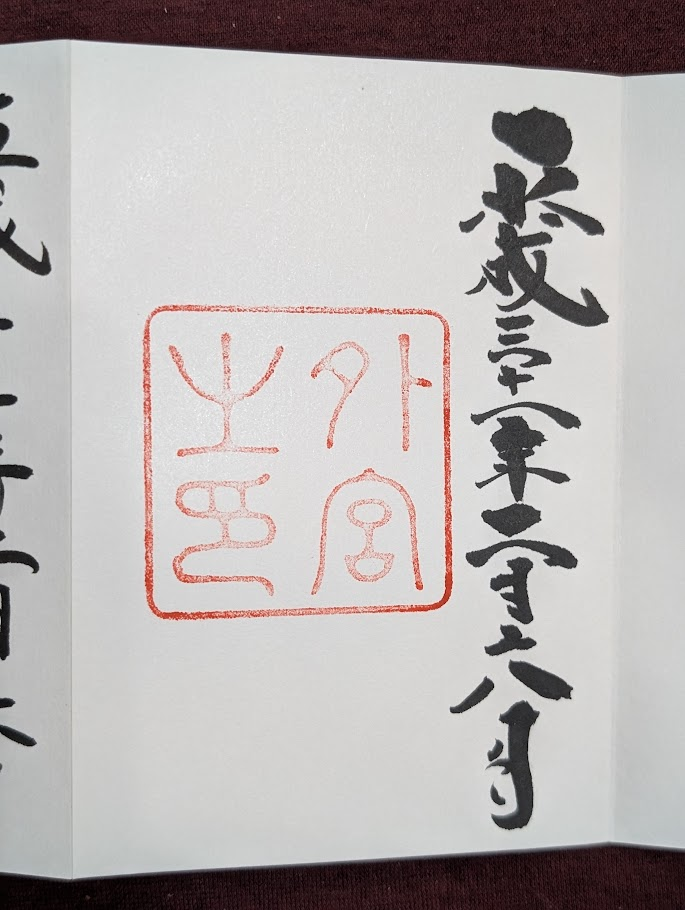 平成三十一年二月十八日
外宮
之印